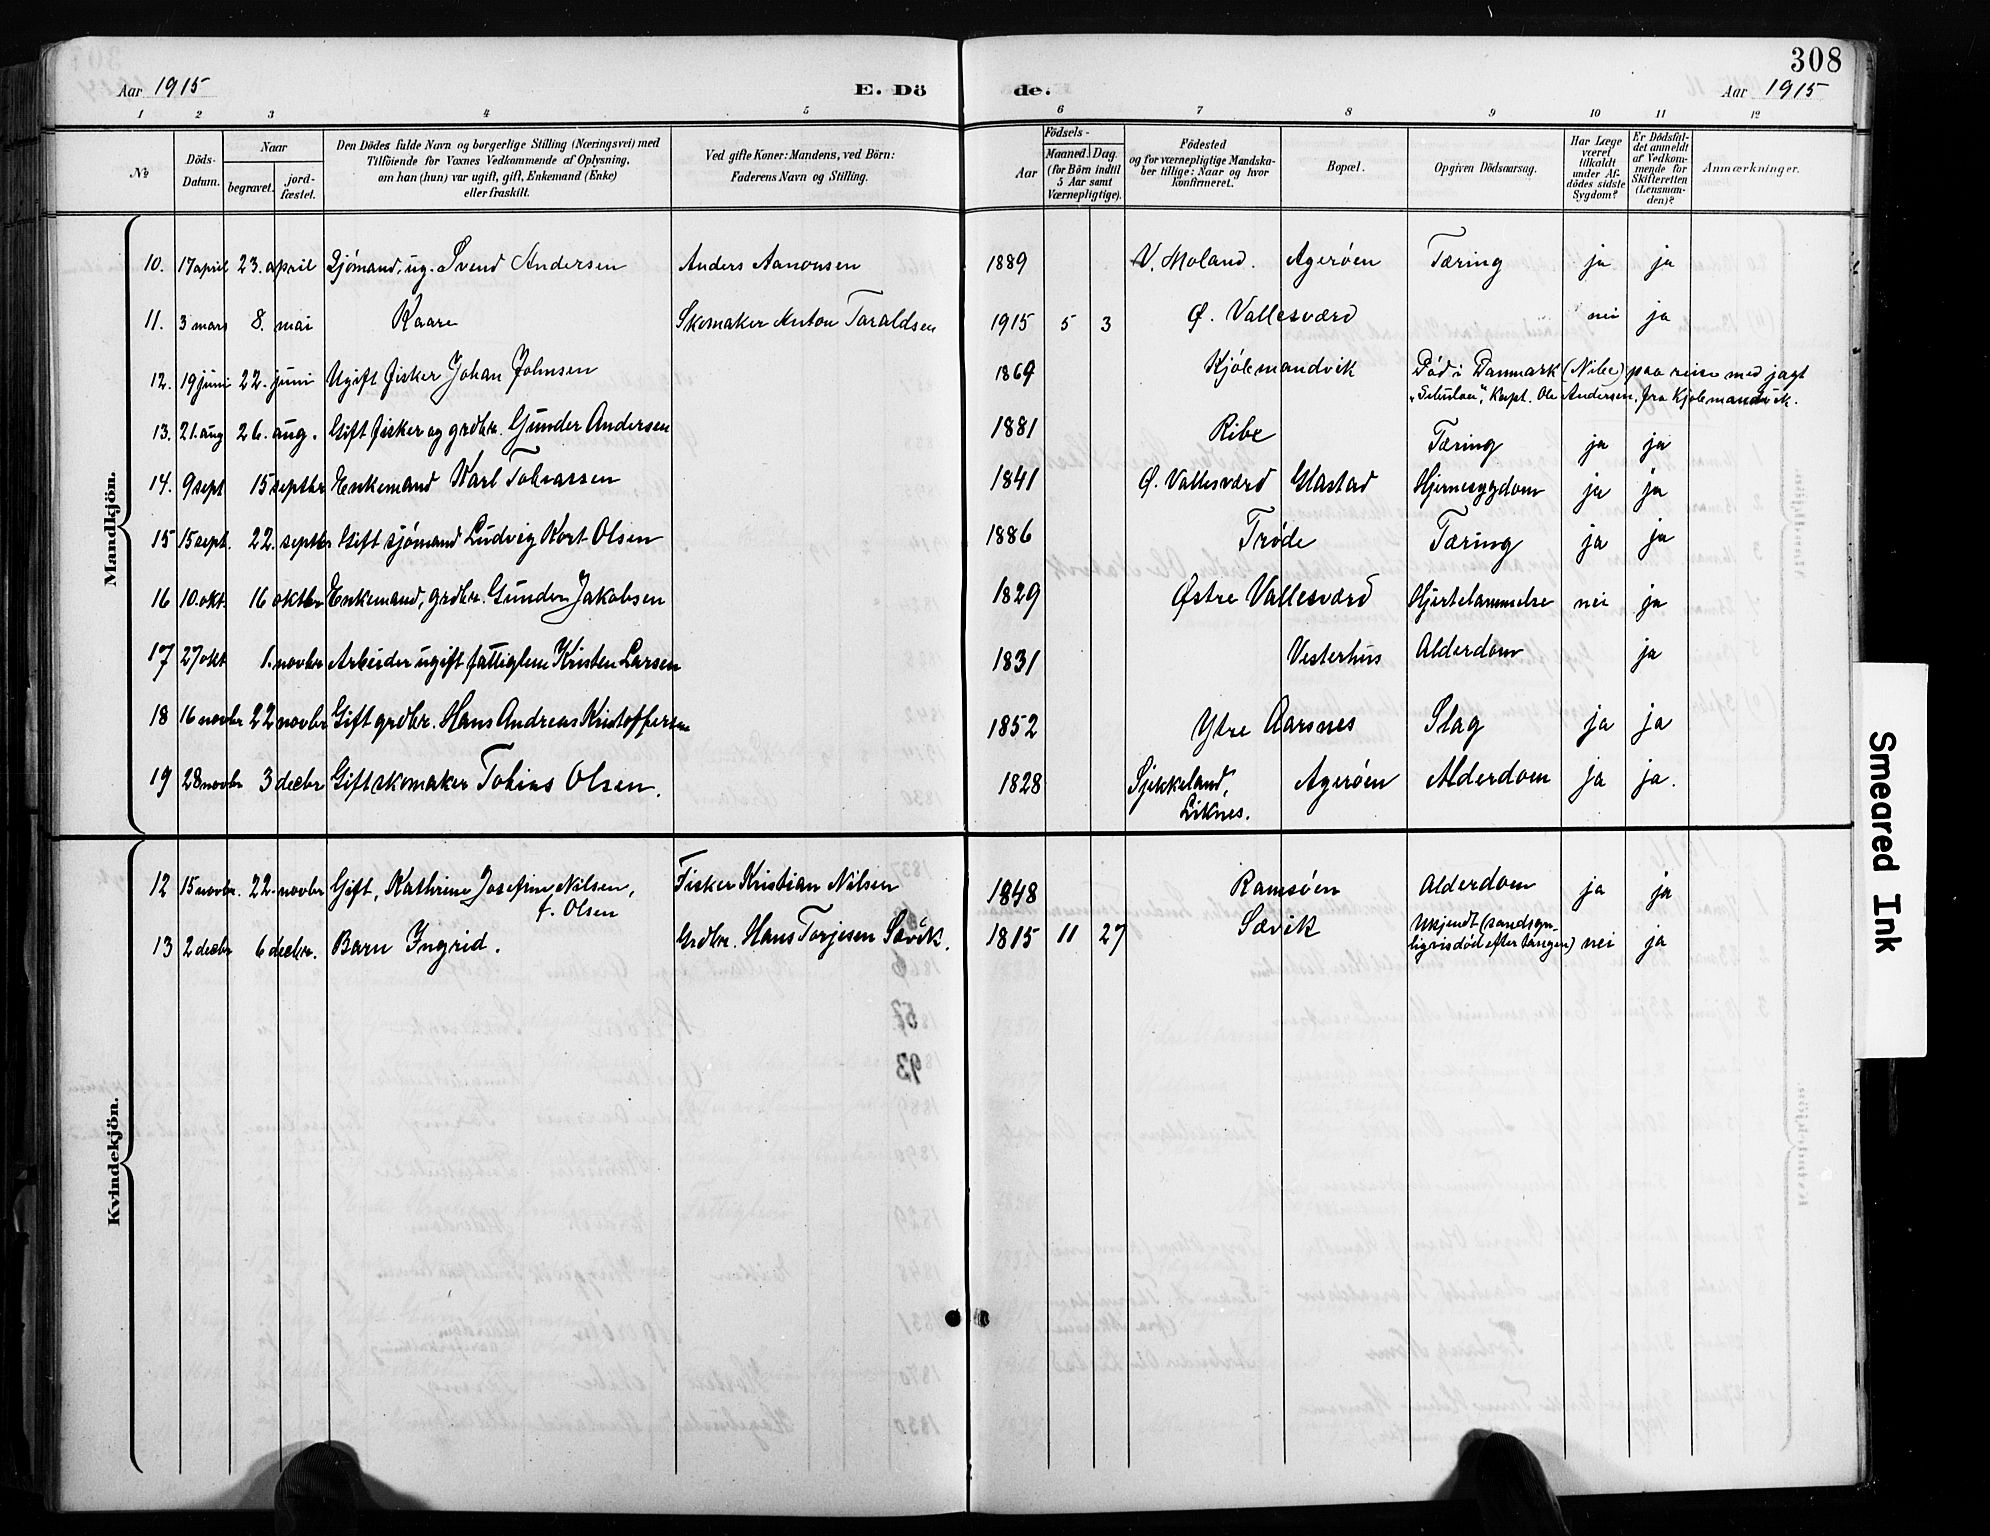 308
Aar 1915 E. Dö de. Aar 1915
1 2 3 4 5 6 7 8 9 10 11 12
№ Döds-Datum. Naar begravet. jord-fæstet. Den Dödes fulde Navn og borgerlige Stilling (Næringsvei) med Tilföiende for Voxnes Vedkommende af Oplysning, om han (hun) var ugift, gift, Enkemand (Enke) eller fraskilt. Ved gifte Koner: Mandens, ved Börn: Faderens Navn og Stilling. Födsels- Aar Maaned. Dag. (for Börn indtil 5 Aar samt Værnepligtige). Födested og for værnepligtige Mandskaber tillige: Naar og hvor konfirmeret. Bopæl. Opgiven Dödsaarsag. Har Læge været tilkaldt under Afdödes sidste Sygdom? Er Dödsfaldet anmeldt af Vedkommende for Skifteretten (Lensmanden)? Anmærkninger.
Mandkjön.
10. 17 april 23. april Sjømand, ug. Svend Andersen Anders Aanonsen 1889 V. Moland. Agerøen Tæring ja ja
11. 3 mars 8. mai Kaare Skomaker Anton Taraldsen 1915 5 3 Ø. Vallesværd nei ja
12. 19 juni 22. juni Ugift fisker Johan Johnsen 1869 Kjøbmandvik Død i Danmark (Nibe) paa reise med jagt
Kapt. Ole Andersen, fra Kjøbmandvik.
13. 21. aug 26. aug. Gift fisker og grdbr. Gunder Andersen 1881 Ribe Tæring ja ja
14. 9 sept 15 septbr Enkemand Karl Tobiassen 1841 Ø. Vallesværd Glastad Hjernesygdom ja ja
15 15 sept. 22. septbr Gift sjømand Ludvig Kort Olsen 1886 Trøde Tæring ja ja
16 10. okt. 16 oktbr Enkemand, grdbr. Gunder Jakobsen 1829 Østre Vallesværd Hjertelammelse nei ja
17 27 okt 1. novbr Arbeider ugift fattiglem Kristen Larsen 1831 Vesterhus Alderdom ja
18 16 novbr 22 novbr Gift grdbr. Hans Andreas Kristoffersen 1852 Ytre Aarsnes Slag ja ja
19 28 novbr 3 decbr Gift skomaker Tobias Olsen. 1828 Sjekkeland, Agerøen Alderdom ja ja.
Liknes.
Kvindekjön.
12 15 novbr. 22. novbr Gift, Kathrine Josefine Nilsen, Fisker Kristian Nilsen 1848 Ramsøen Alderdom ja ja
f. Olsen
13 2 decbr 6 decbr. Barn Ingrid. Grdbr. Hans Torjesen Sævik. 1815 11 27 Sævik Ukjendt (sandsyn-
ligvis død efter tangen) nei ja
Smeared Ink